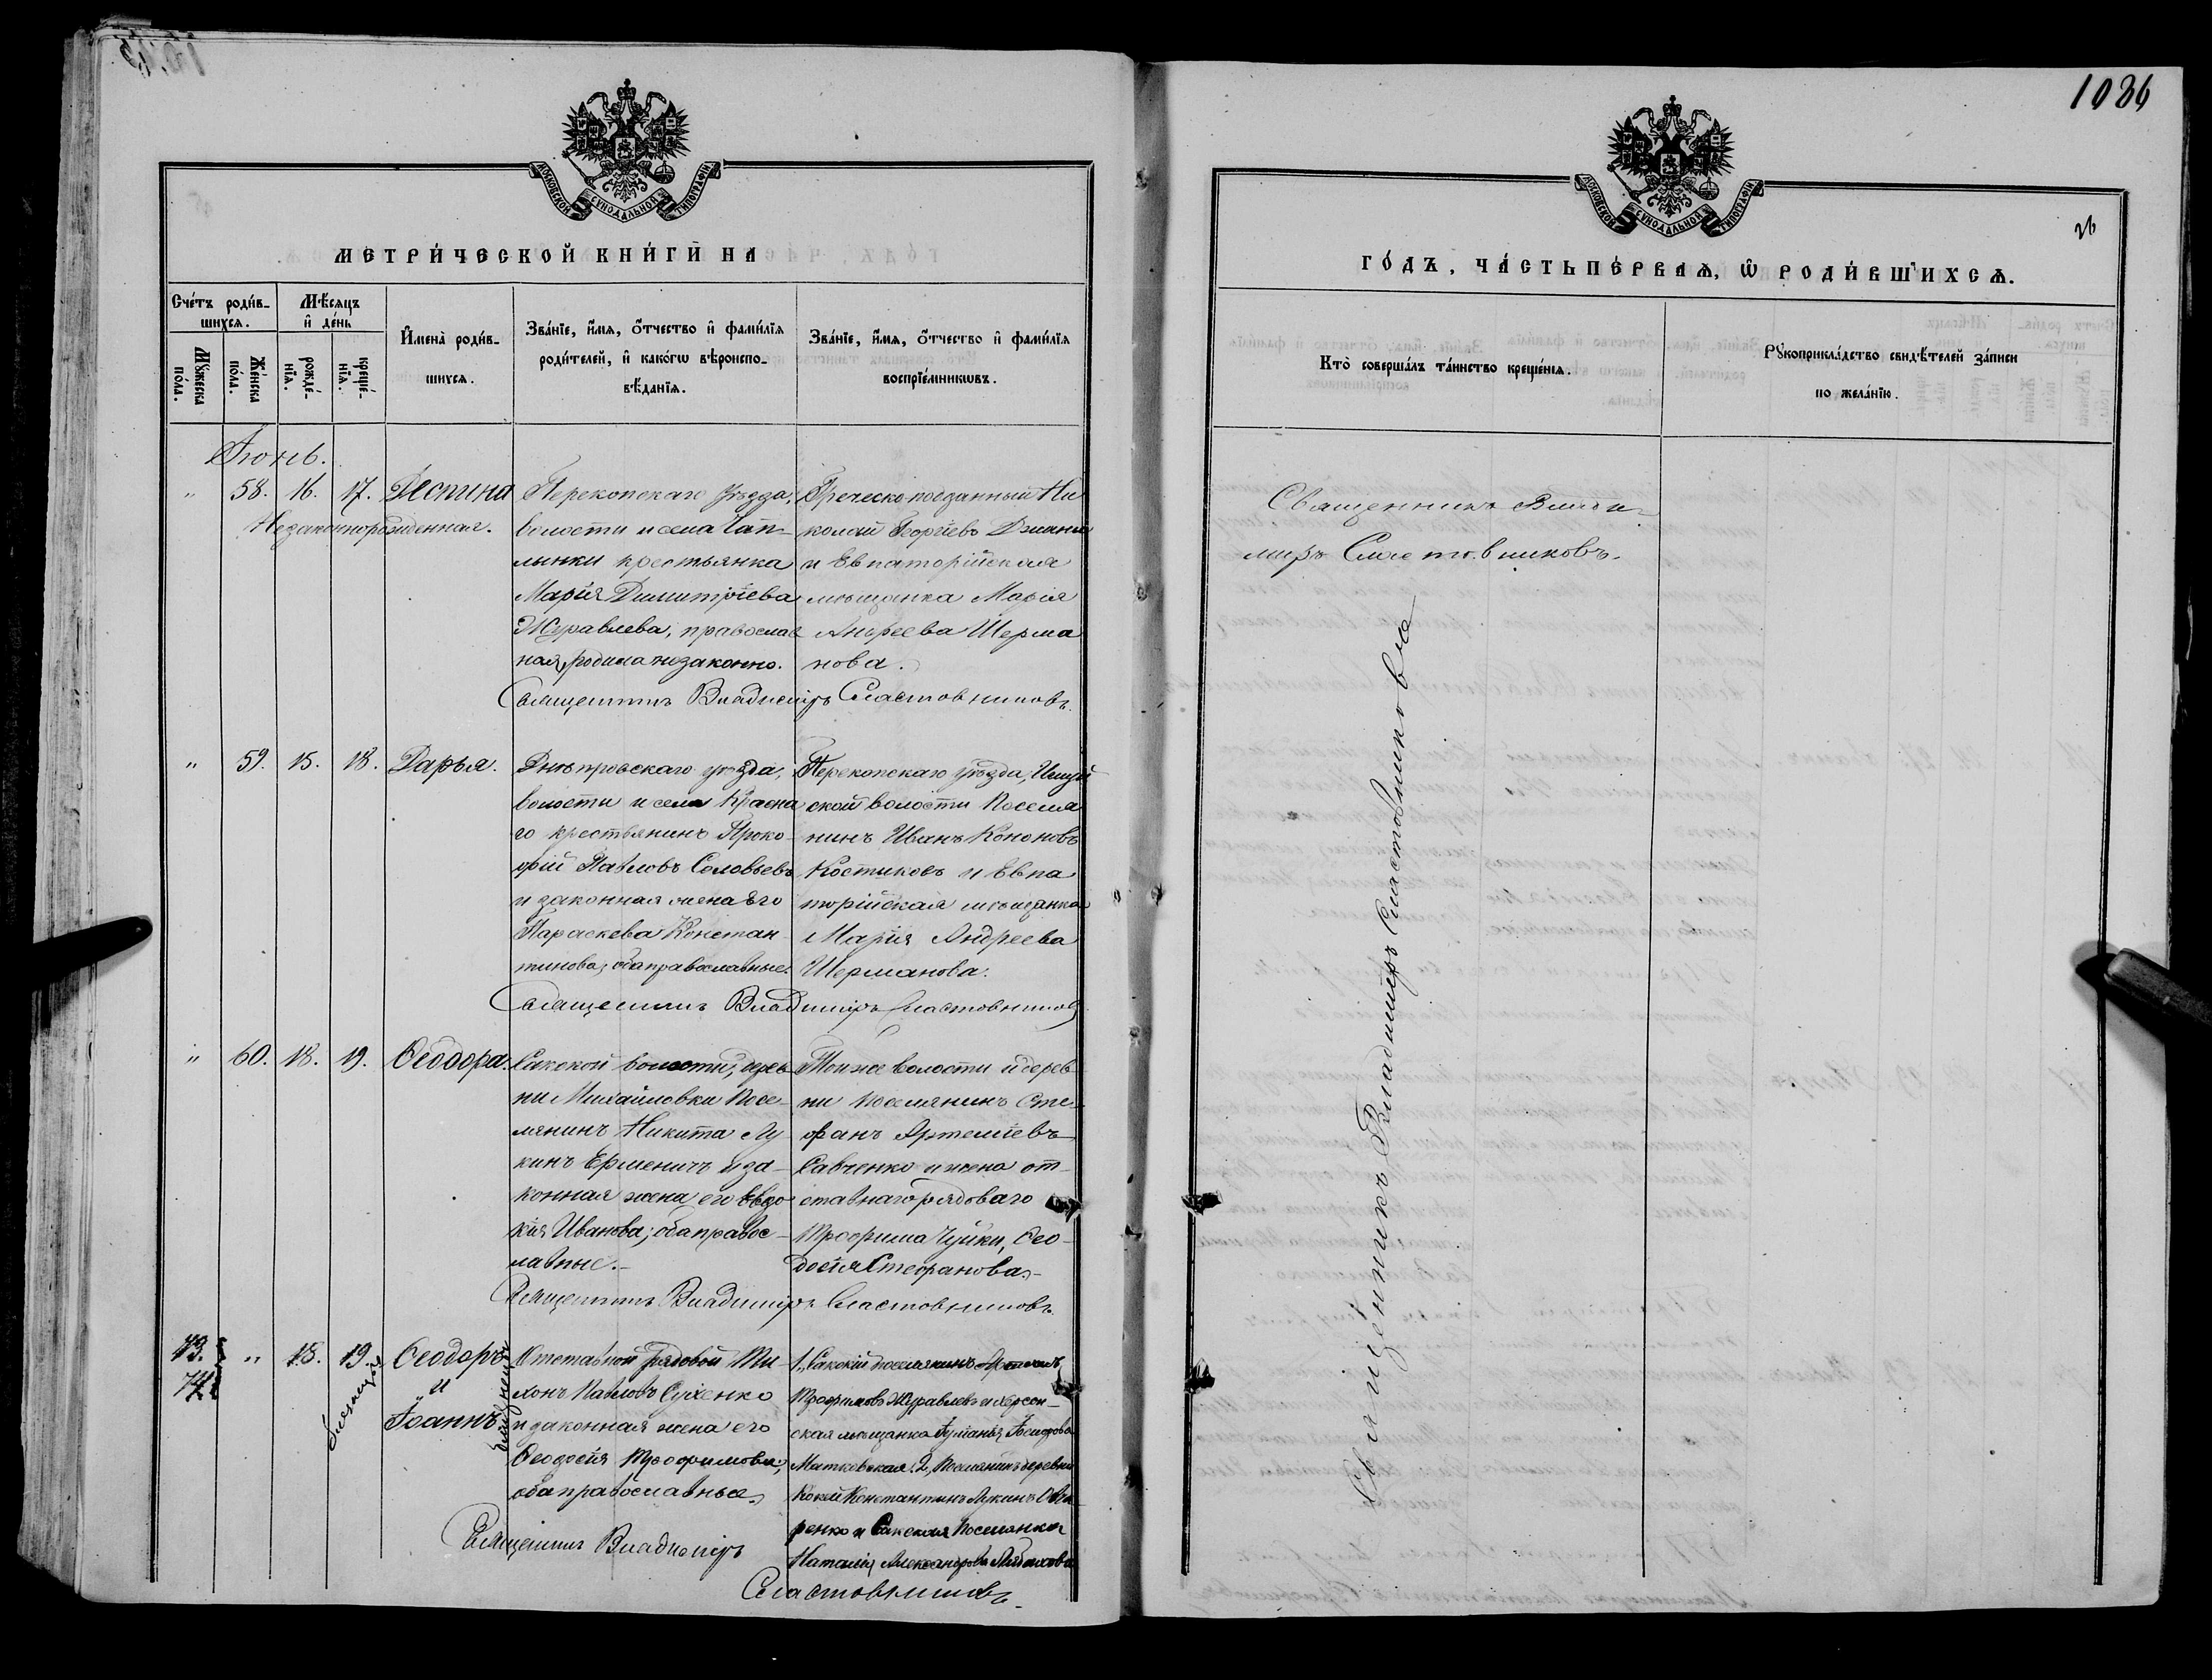 1086
26
МОСКОВСКОЙ СѴНОДАЛЬНОЙ ТИПОГРАФІИ
МЕТРИ́ЧЕСКОЙ КНИ́ГИ НА
Сче́тъ роди́в-
шихся.
Мѣ́сяцъ
и҆ де́нь
Мꙋ́жеска
по́ла.
Же́нска
по́ла.
рожде́-
нїѧ.
креще́-
нїѧ.
И҆мена̀ роди́в-
шихсѧ.
Зва́нїе, и҆́мѧ, ѻ҆́тчество и҆ фами́лїѧ
роди́телей, и҆ како́гѡ вѣроиспо-
вѣ́данїѧ.
Зва́нїе, и҆́мѧ, ѻ҆́тчество и҆ фами́лїѧ
воспрїе́мникѡвъ.
Іюнь.
" 58. 16. 17. Деспина
Незаконнорожденная.
Перекопскаго уѣзда,
волости и села Чап-
лынки крестьянка
Марія Димитріева
Журавлева, православ
ная, родила незаконно.
Греческоподданный Ни
колай Георгіевъ
и Евпаторійская
мѣщанка Марія
Андреева Шерма
нова.
Священникъ Владиміръ Сластовниковъ.
" 59. 15. 18. Дарья.
Днѣпровскаго уѣзда,
волости и села Красна
го крестьянинъ Проко-
фій Павловъ Соловьевъ
и законная жена его
Параскева Констан-
тинова, оба православные.
Перекопскаго уѣзда,
ской волости Поселя
нинъ Иванъ Кононовъ
Костиковъ и Евпа
торійская мѣщанка
Марія Андреева
Шерманова.
Священникъ Владиміръ Сластовниковъ
" 60. 18. 19. Ѳеодора.
Сакской волости, дерев
ни Михайловки Посе-
лянинъ Никита Лу-
кинъ Ерменичъ и за-
конная жена его Евдо
кія Иванова; оба правос-
лавные.
Той же волости и дерев
ни поселянинъ Сте-
фанъ Артеміевъ
Савченко и жена от-
ставнаго рядоваго
Трофима Чуйки, Ѳео-
досія Стефанова.
Священникъ Владиміръ Сластовниковъ.
73. " 18. 19. Ѳеодоръ
74.
и
Іоаннъ
близнецы
близнецы
Отставной рядовой Ти-
хонъ Павловъ Сухенко
и законная жена его
Ѳеодосія Трофимова,
оба православные.
1, Сакскій поселянинъ
Трофимовъ Журавлевъ и херсон-
ская мѣщанка
Матковская. 2, Поселянинъ деревни
Константинъ Лукинъ
ренко и Сакская поселянка
Наталія Александрова
Священникъ Владиміръ
Сластовниковъ.
МОСКОВСКОЙ СѴНОДАЛЬНОЙ ТИПОГРАФІИ
ГО́ДЪ, ЧА́СТЬ ПЕ́РВАѦ, Ѡ҆ РОДИ́ВШИХСѦ.
Кто̀ соверша́лъ та́инство креще́нїѧ.
Рꙋкоприкла́дство свидѣ́телей за́писи
по жела́нїю.
Священникъ Влади-
миръ Сластовниковъ.
Священникъ Владимиръ Сластовниковъ